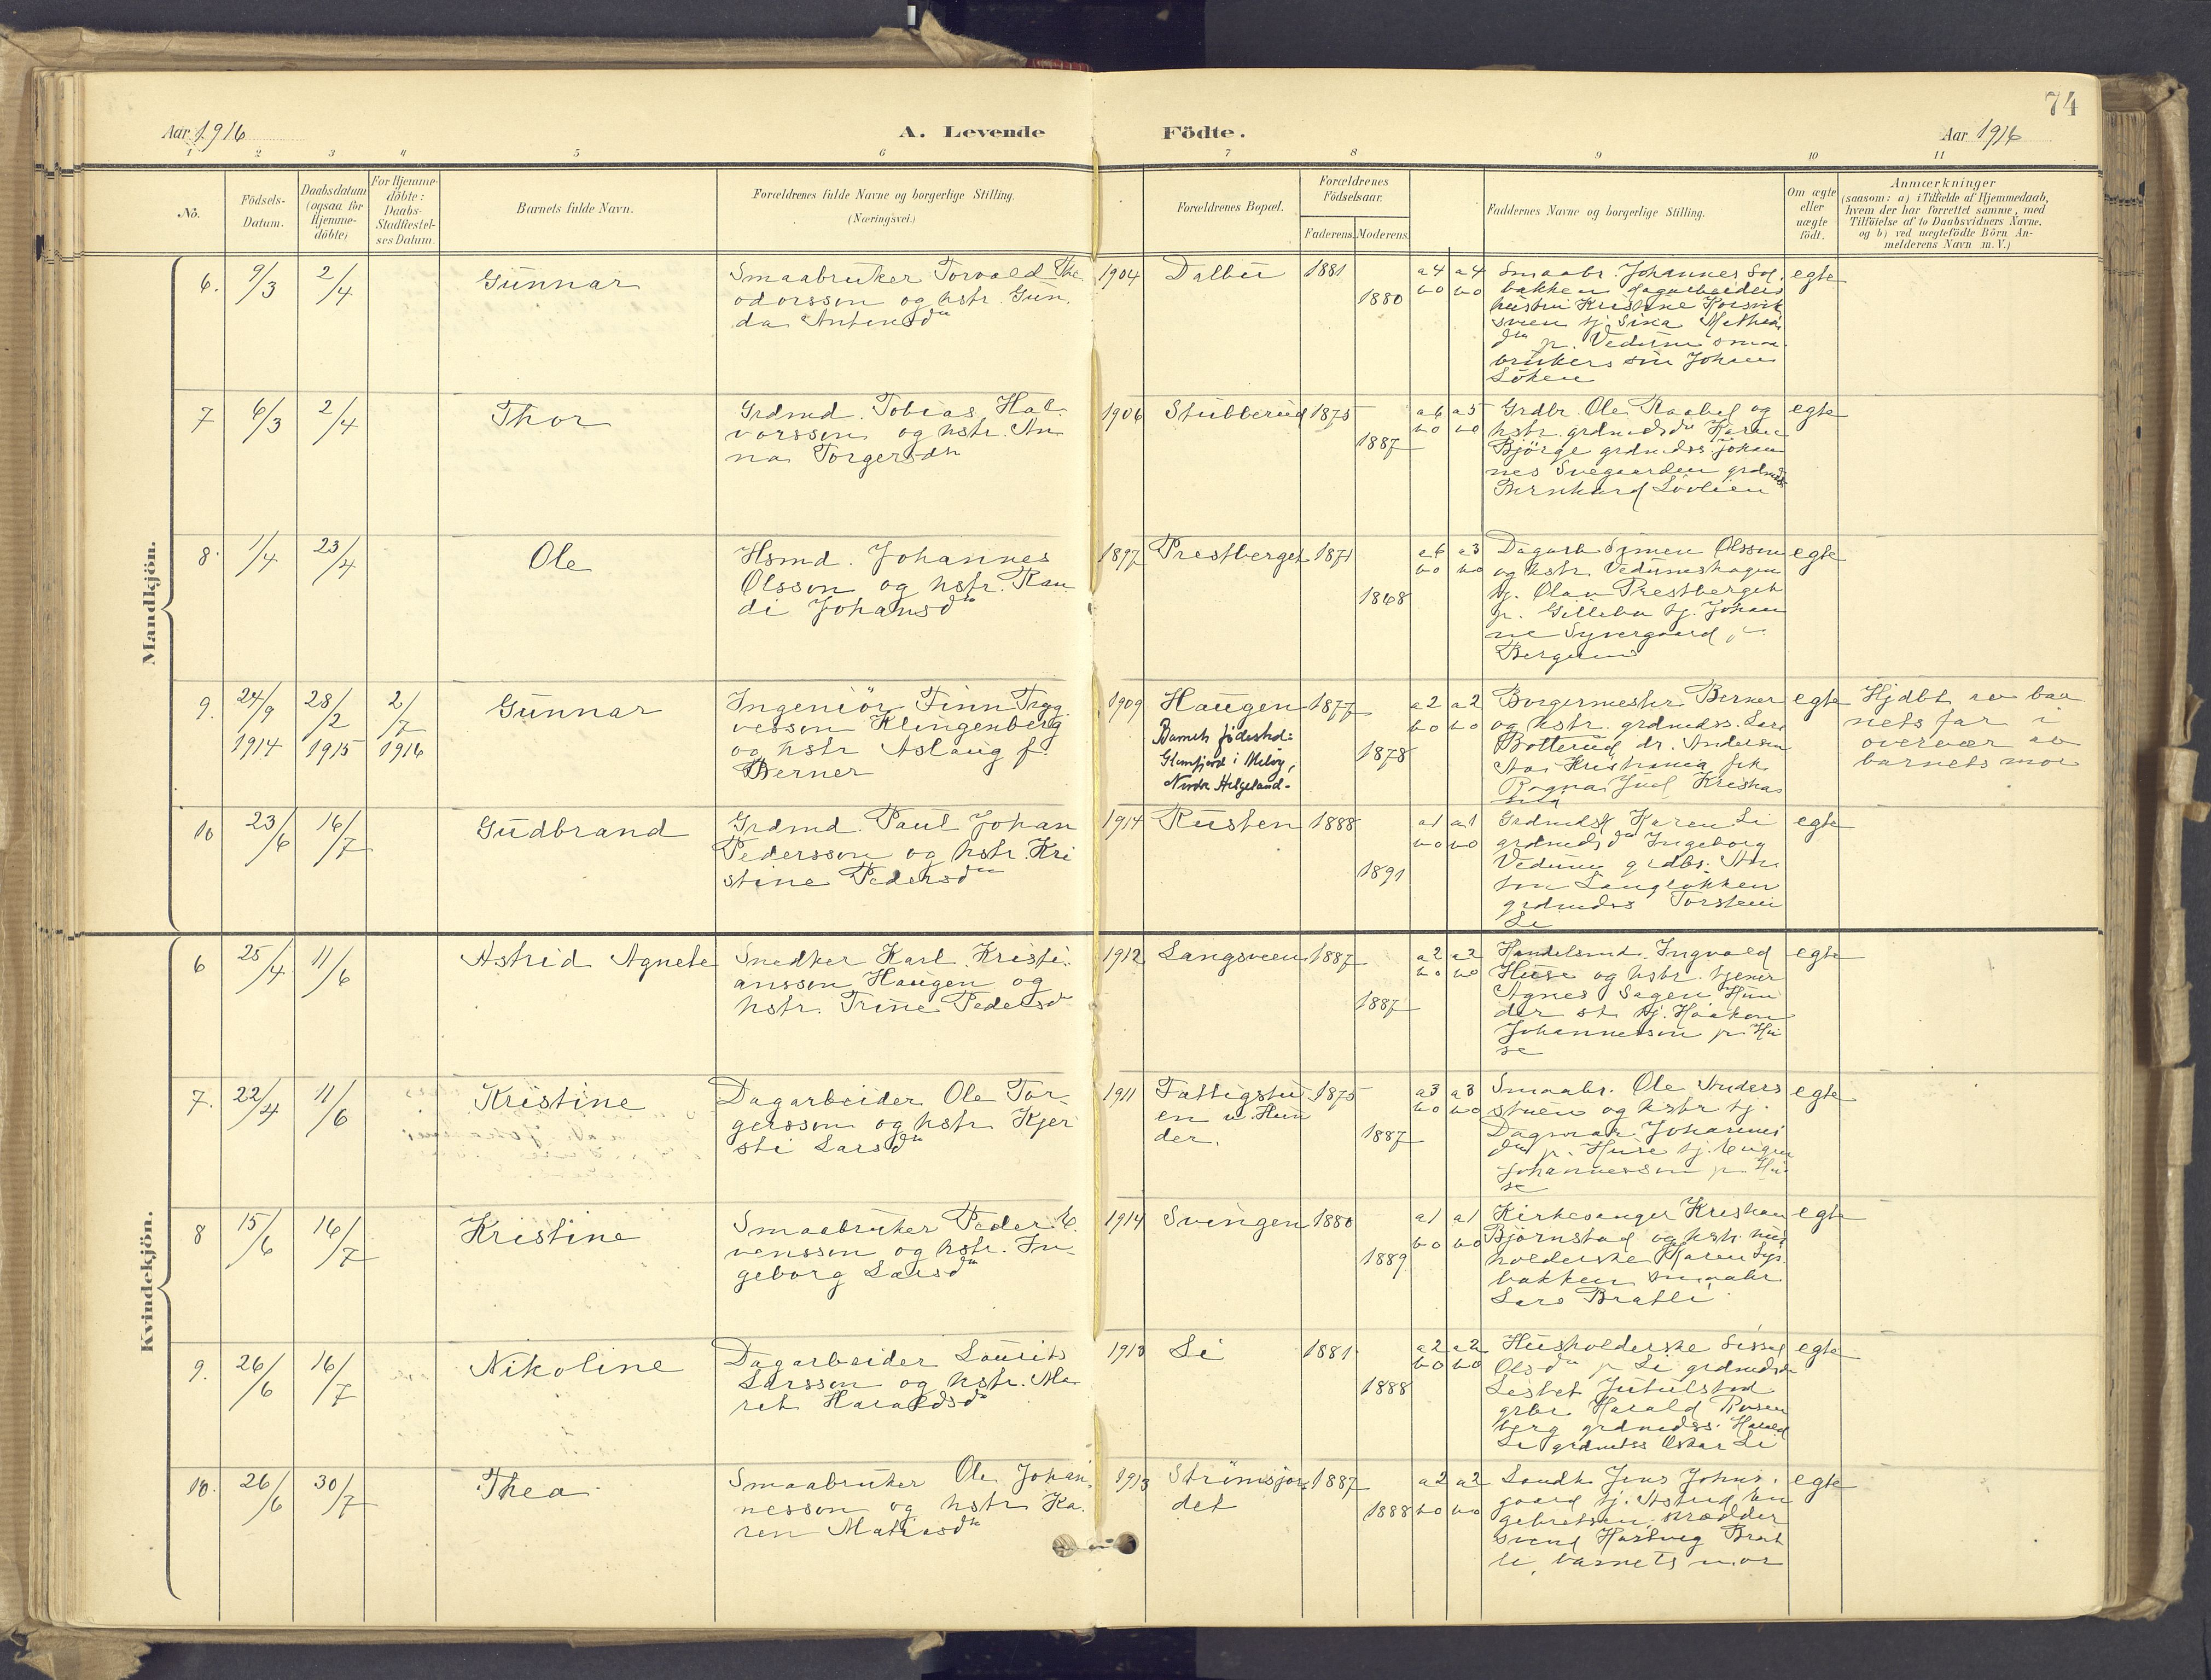 74
Aar 1916
A. Levende
Födte.
Aar 1916
1 2 3 4 5 6 7 8 9 10 11
No.
Födsels-
Datum.
Daabsdatum
(ogsaa for
Hjemme-
döbte)
For Hjemme-
döbte:
Daabs-
Stadfæstel-
ses Datum.
Barnets fulde Navn.
Forældrenes fulde Navne og borgerlige Stilling.
(Næringsvei.)
Forældrenes Bopæl.
Forældrenes
Födselsaar.
Faderens. Moderens.
Faddernes Navne og borgerlige Stilling.
Om ægte
eller
uægte
födt.
Anmærkninger
(saasom: a) i Tilfælde af Hjemmedaab,
hvem der har forrettet samme, med
Tilföielse af to Daabsvidners Navne.
og b) ved uægtefödte Börn An-
melderens Navn m. V.)
Mandkjön.
6. 9/3 2/4 Gunnar
Smaabruker Torvald The
odorssön og hstr. Gun-
da Antonsdtr
1904 Dalbu 1881 1880
a4 a4
b0 b0
Smaabr. Johannes Sol
bakken dagarbeiders
hustru Kristine
sveen tj. Sina
dtr p. Vedum smaa
brukers sön Johan
Löken
egte
7 6/3 2/4 Thor
Grdmd. Tobias Hal-
vorssön og hstr. An
na Torgersdtr
1906 Stubberud 1875 1887
a6 a5
b0 b0
Grdbr. Ole Raabøl og
hstr. grdmdsdtr Karen
Björge grdmdss Johan
nes Svegaarden grdmdss
Bernhard Lövlien
egte
8. 1/4 23/4 Ole
Hsmd. Johannes
Olssön og hstr. Ran
di Johansdtr
1897 Prestberget 1871 1868
a6 a3
b0 b0
Dagarb Simen Olssön
og hstr. Vedumshagen
tj. Olav Prestberget
p. Gillebu tj. Johan
ne Syvergaard p.
Bergum
egte
9. 24/9 1914 28/2 1915 2/7 1916 Gunnar
Ingeniör Finn Tryg
vessön Klingenberg
og hstr Aslaug f.
Berner
1909 Haugen 1877 1878
Barnets födested:
Glomfjord i Melöy,
Nordre Helgeland.
a2 a2
b0 b0
Borgermester Berner
og hstr. grdmdss. Lars
Botterud dr. Andersen
Aas Kristiania frk.
Ragna Juel Kristia
nia
egte
Hjdbt av bar
nets far i
overvær av
barnets mor
10 23/6 16/7 Gudbrand
Grdmd. Paul Johan
Pederssön og hstr. Kri
stine Pedersdtr
1914 Rusten 1888 1891
a1 a1
b0 b0
Grdmdsk Karen Li
grdmdsdtr Ingeborg
Vedum grdbr. An
ton Langlökken
grdmdss Torstein
Li
egte
Kvindekjön.
6 25/4 11/6 Astrid Agnete
Snedker Karl Kristi-
anssön Haugen og
hstr. Trine Pedersdtr
1912 Langsveen 1887 1887
a2 a2
b0 b0
Handelsmd. Ingvald
Huse og hstr. tjener
Agnes Sagen Hun
der st tj. Haakon
Johannessön p. Hu
se
egte
7. 22/4 11/6 Kristine
Dagarbeider Ole Tor-
gerssön og hstr. Kjer
sti Larsdtr
1911 Fattigstu
en u. Hun
der.
1875 1887
a3 a3
b0 b0
Smaabr. Ole Anders
stuen og hstr tj.
Dagmar Johannes
dtr p. Huse tj. Eugen
Johannessön p. Hu
se
egte
8 15/6 16/7 Kristine
Smaabruker Peder E-
venssön og hstr. In-
geborg Larsdtr
1914 Svingen 1880 1889
a1 a1
b0 b0
Kirkesanger Kristian
Björnstad og hstr. hus
holderske Karen
bakken smaabr
Lars Bratli
egte
9. 26/6 16/7 Nikoline
Dagarbeider Laurits
Larssön og hstr. Ma-
rit Haraldsdtr
1913 Li 1881 1888
a2 a2
b0 b0
Husholderske Sissel
Olsdtr p Li grdmdsdtr
Lisbet Jutulstad
grbr Harald Rosen
berg grdmdss. Harald
Li grdmdss Oskar Li
egte
10. 26/6 30/7 Thea
Smaabruker Ole Johan-
nessön og hstr Ka-
ren Matiasdtr
1913 Strömsjor
det
1887 1888
a2 a2
b0 b0
Landh. Jens Johns-
gaard tj. Astrid En
gebretsen, skrædder
svend Hartvig Brat
li, barnets mor
egte